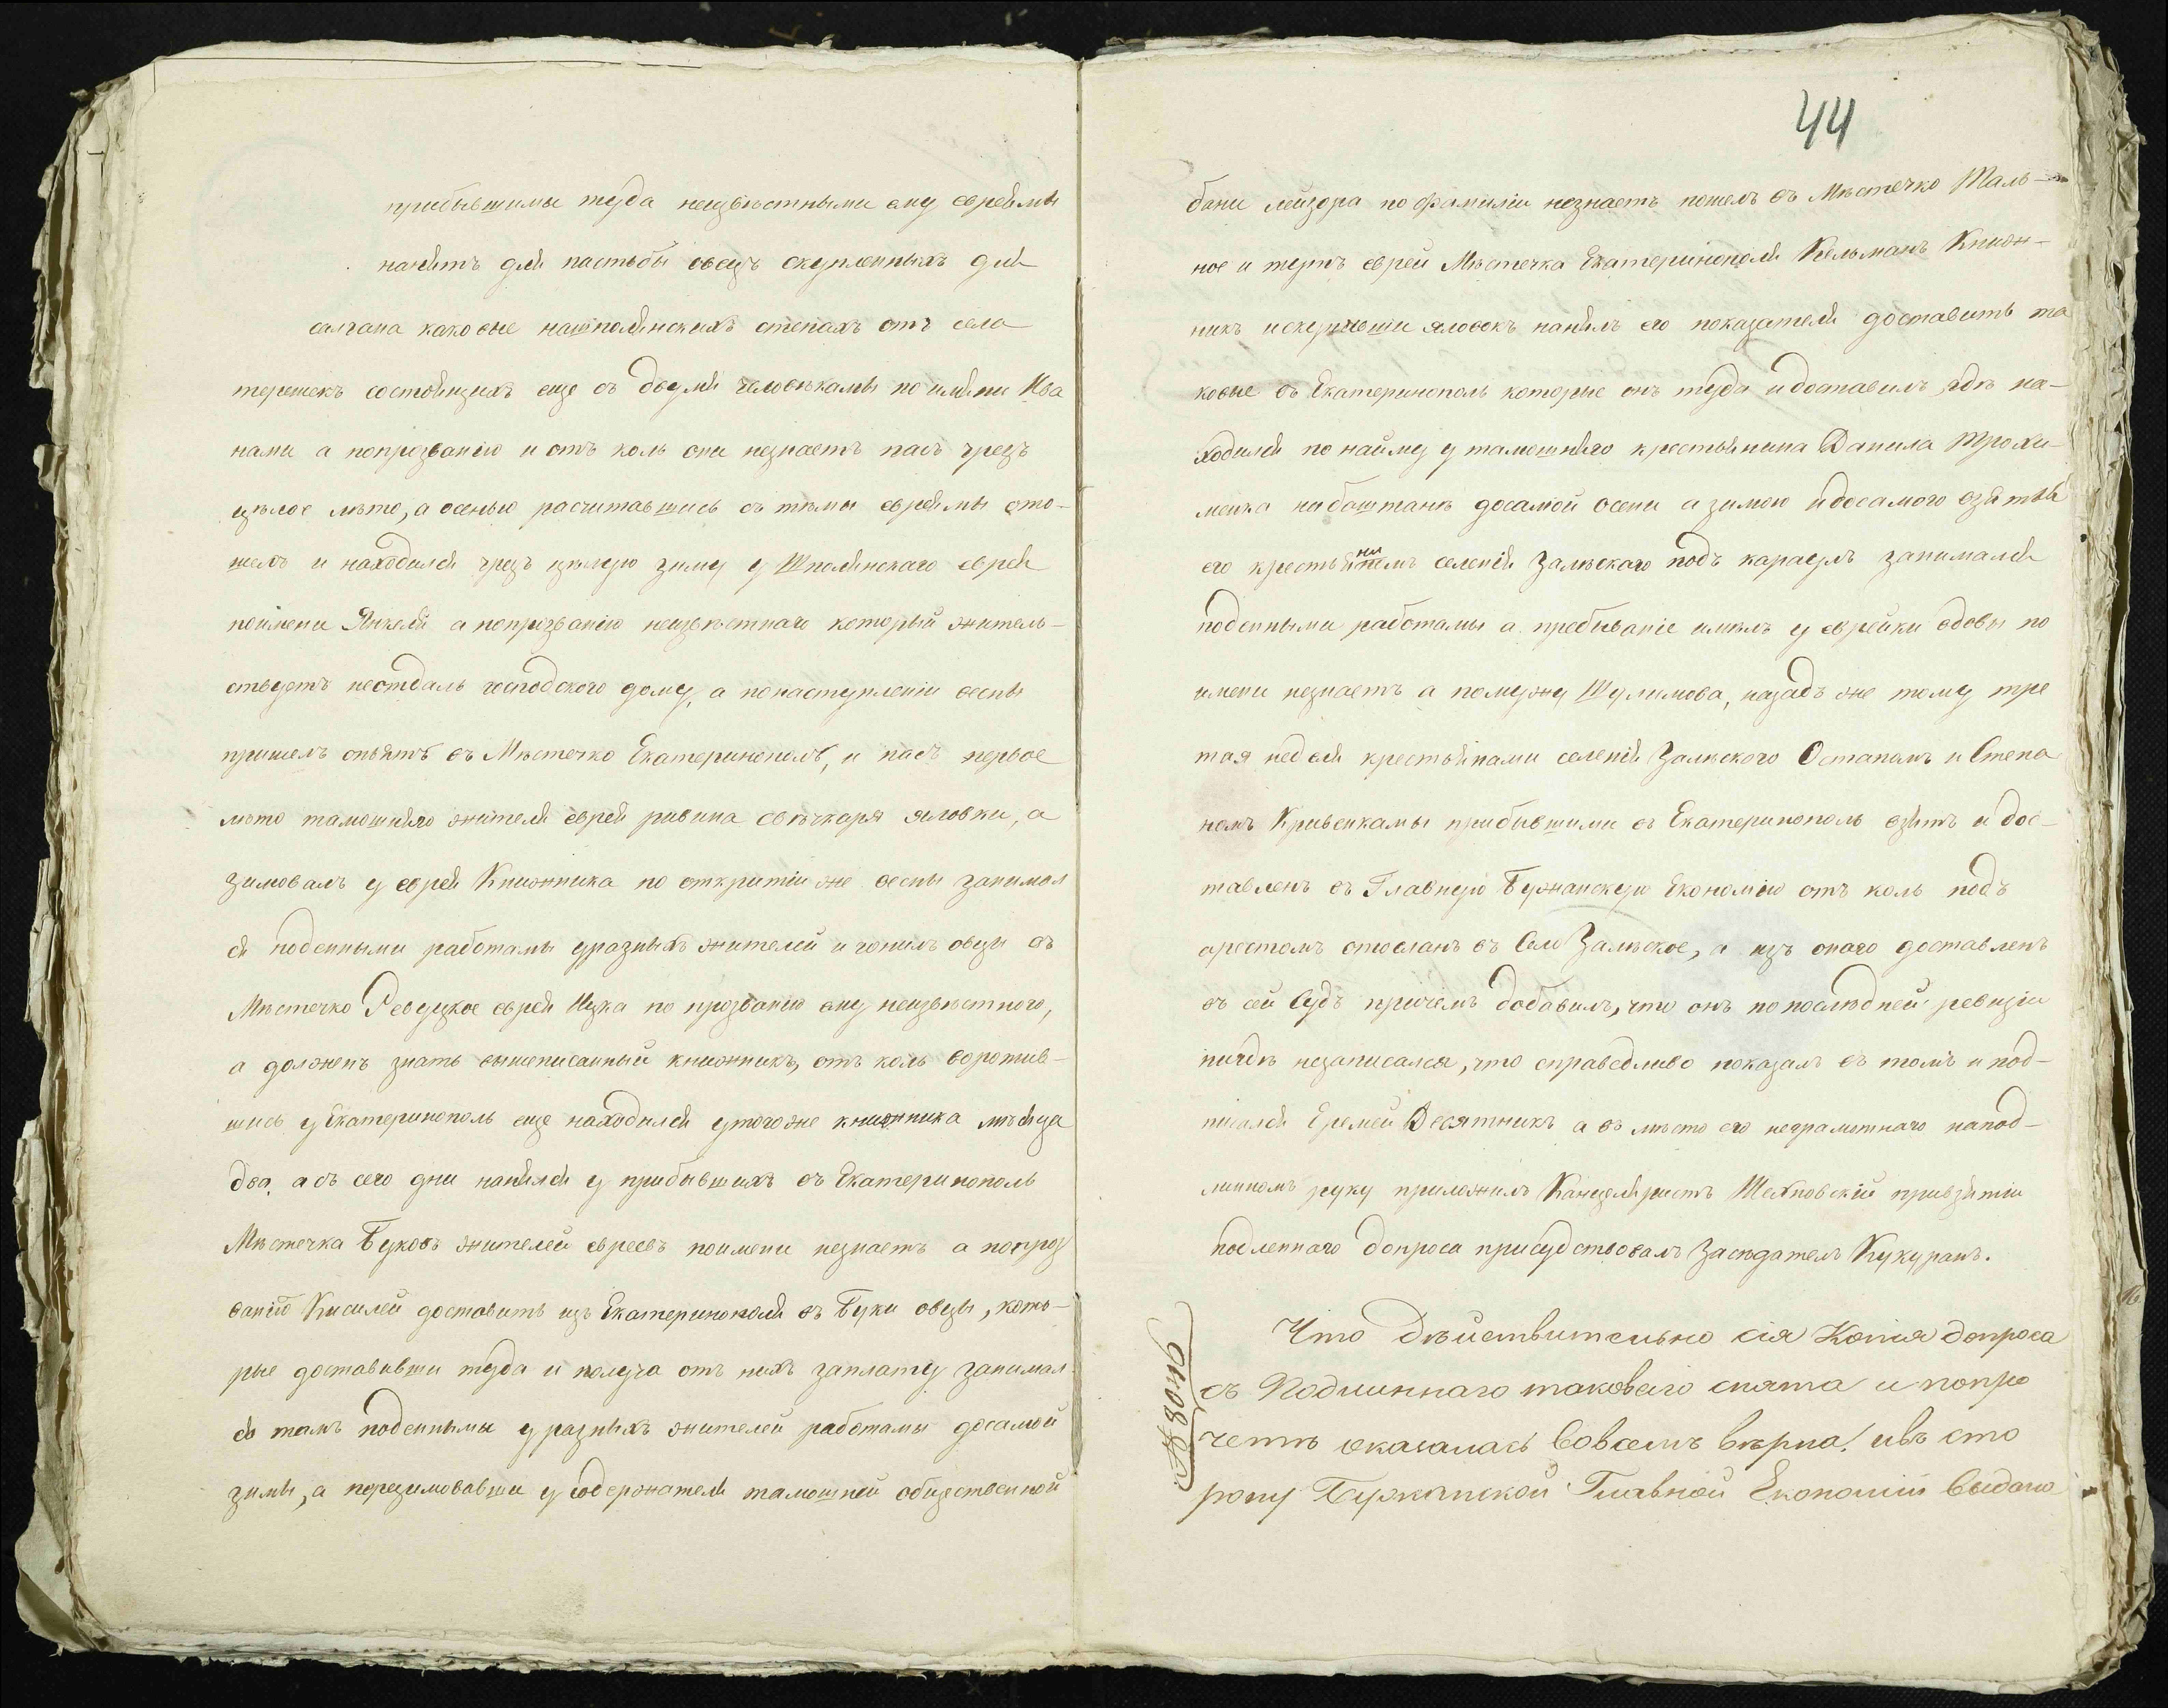 прибывшимы туда неизвѣстными ему евреямы
нанятъ для пастьбы овецъ скупленныхъ для
салгана каковые нашполянскихъ степахъ отъ села
терешекъ состоящихъ еще съ двумя человѣкамы по имяни Ива
нами а попрозванію и отъ коль они незнаетъ пасъ чрезъ
цѣлое лѣто, а осенью расчитавшись съ тѣмы евреямы ото-
шелъ и находился чрезъ цѣлую зиму у Шполянскаго еврея
поимени Янкеля а попрозванію неизвѣстнаго который житель-
ствуетъ неотдаль господского дому, а понаступленіи весны
пришелъ опьять въ Мѣстечко Екатеринополь, и пасъ первое
лѣто тамошняго жителя еврея рувина свѣчкаря яловки, а
зимовалъ у еврея Книжника по открытіи же весны занимал
ся поденными работамы уразныхъ жителей и гонилъ овцы въ
Мѣстечко Ревуцкое еврея Ицка по прозванію ему неизвѣстного,
а долженъ знать вышеписанный книжникъ, отъ коль воротив-
шись у Екатеринополь еще находился утогоже книжника мѣсяца
два, а съ сего дни нанялся у прибывшихъ въ Екатеринополь
Мѣстечка Буковъ жителей евреевъ поимени незнаетъ а попроз
ванію Киселей доставить изъ Екатеринополя въ Буки овцы, кото-
рые доставивши туда и получа отъ нихъ заплату занимал
ся тамъ поденнымы у разныхъ жителей работамы досамой
зимы, а перезимовавши у содержателя тамошней общественной
44
бани лейзора по фамиліи незнаетъ пошелъ въ Мѣстечко Таль-
ное и тутъ еврей Мѣстечка Екатеринополя Кельманъ Книж-
никъ искупивши яловокъ нанялъ его показателя доставить та
ковые въ Екатеринополь которые онъ туда идоставилъ, гдѣ на-
ходился по найму у тамошняго крестьянина Данила Трохи-
менка набаштанѣ досамой осени а зимою идосамого взятья
его крестьяниномъ селенія Залѣскаго подъ караулъ занимался
поденными работамы а пребываніе имѣлъ у еврейки вдовы по
имени незнаетъ а помужу Шулимова, назадъ же тому тре
тая неделя крестьянами селенія Залѣского Остапомъ и Степа
номъ Кривенкамы прибывшими въ Екатеринополь взятъ и дос-
тавленъ въ Главную Бужанскую Економію отъ коль подъ
арестомъ отосланъ въ Село Залѣское, а изъ оного доставленъ
въ сей Судъ причемъ добавилъ, что онъ попослѣдней ревизіи
нигдѣ незаписался, что справедливо показалъ въ томъ и под-
писался Еремей Десятникъ а въ мѣсто его неграмотнаго напод-
линномъ руку приложилъ Канцеляристъ Шехновскій привзятіи
посленнаго допроса присудствовалъ Засѣдатель Кукуранъ.
Что дѣйствительно сія Копія допроса
съ Подлиннаго таковаго снята и попро
четѣ оказалась Совсемъ вѣрна! ивъ сто
рону Бужанской Главной Економіи выдано